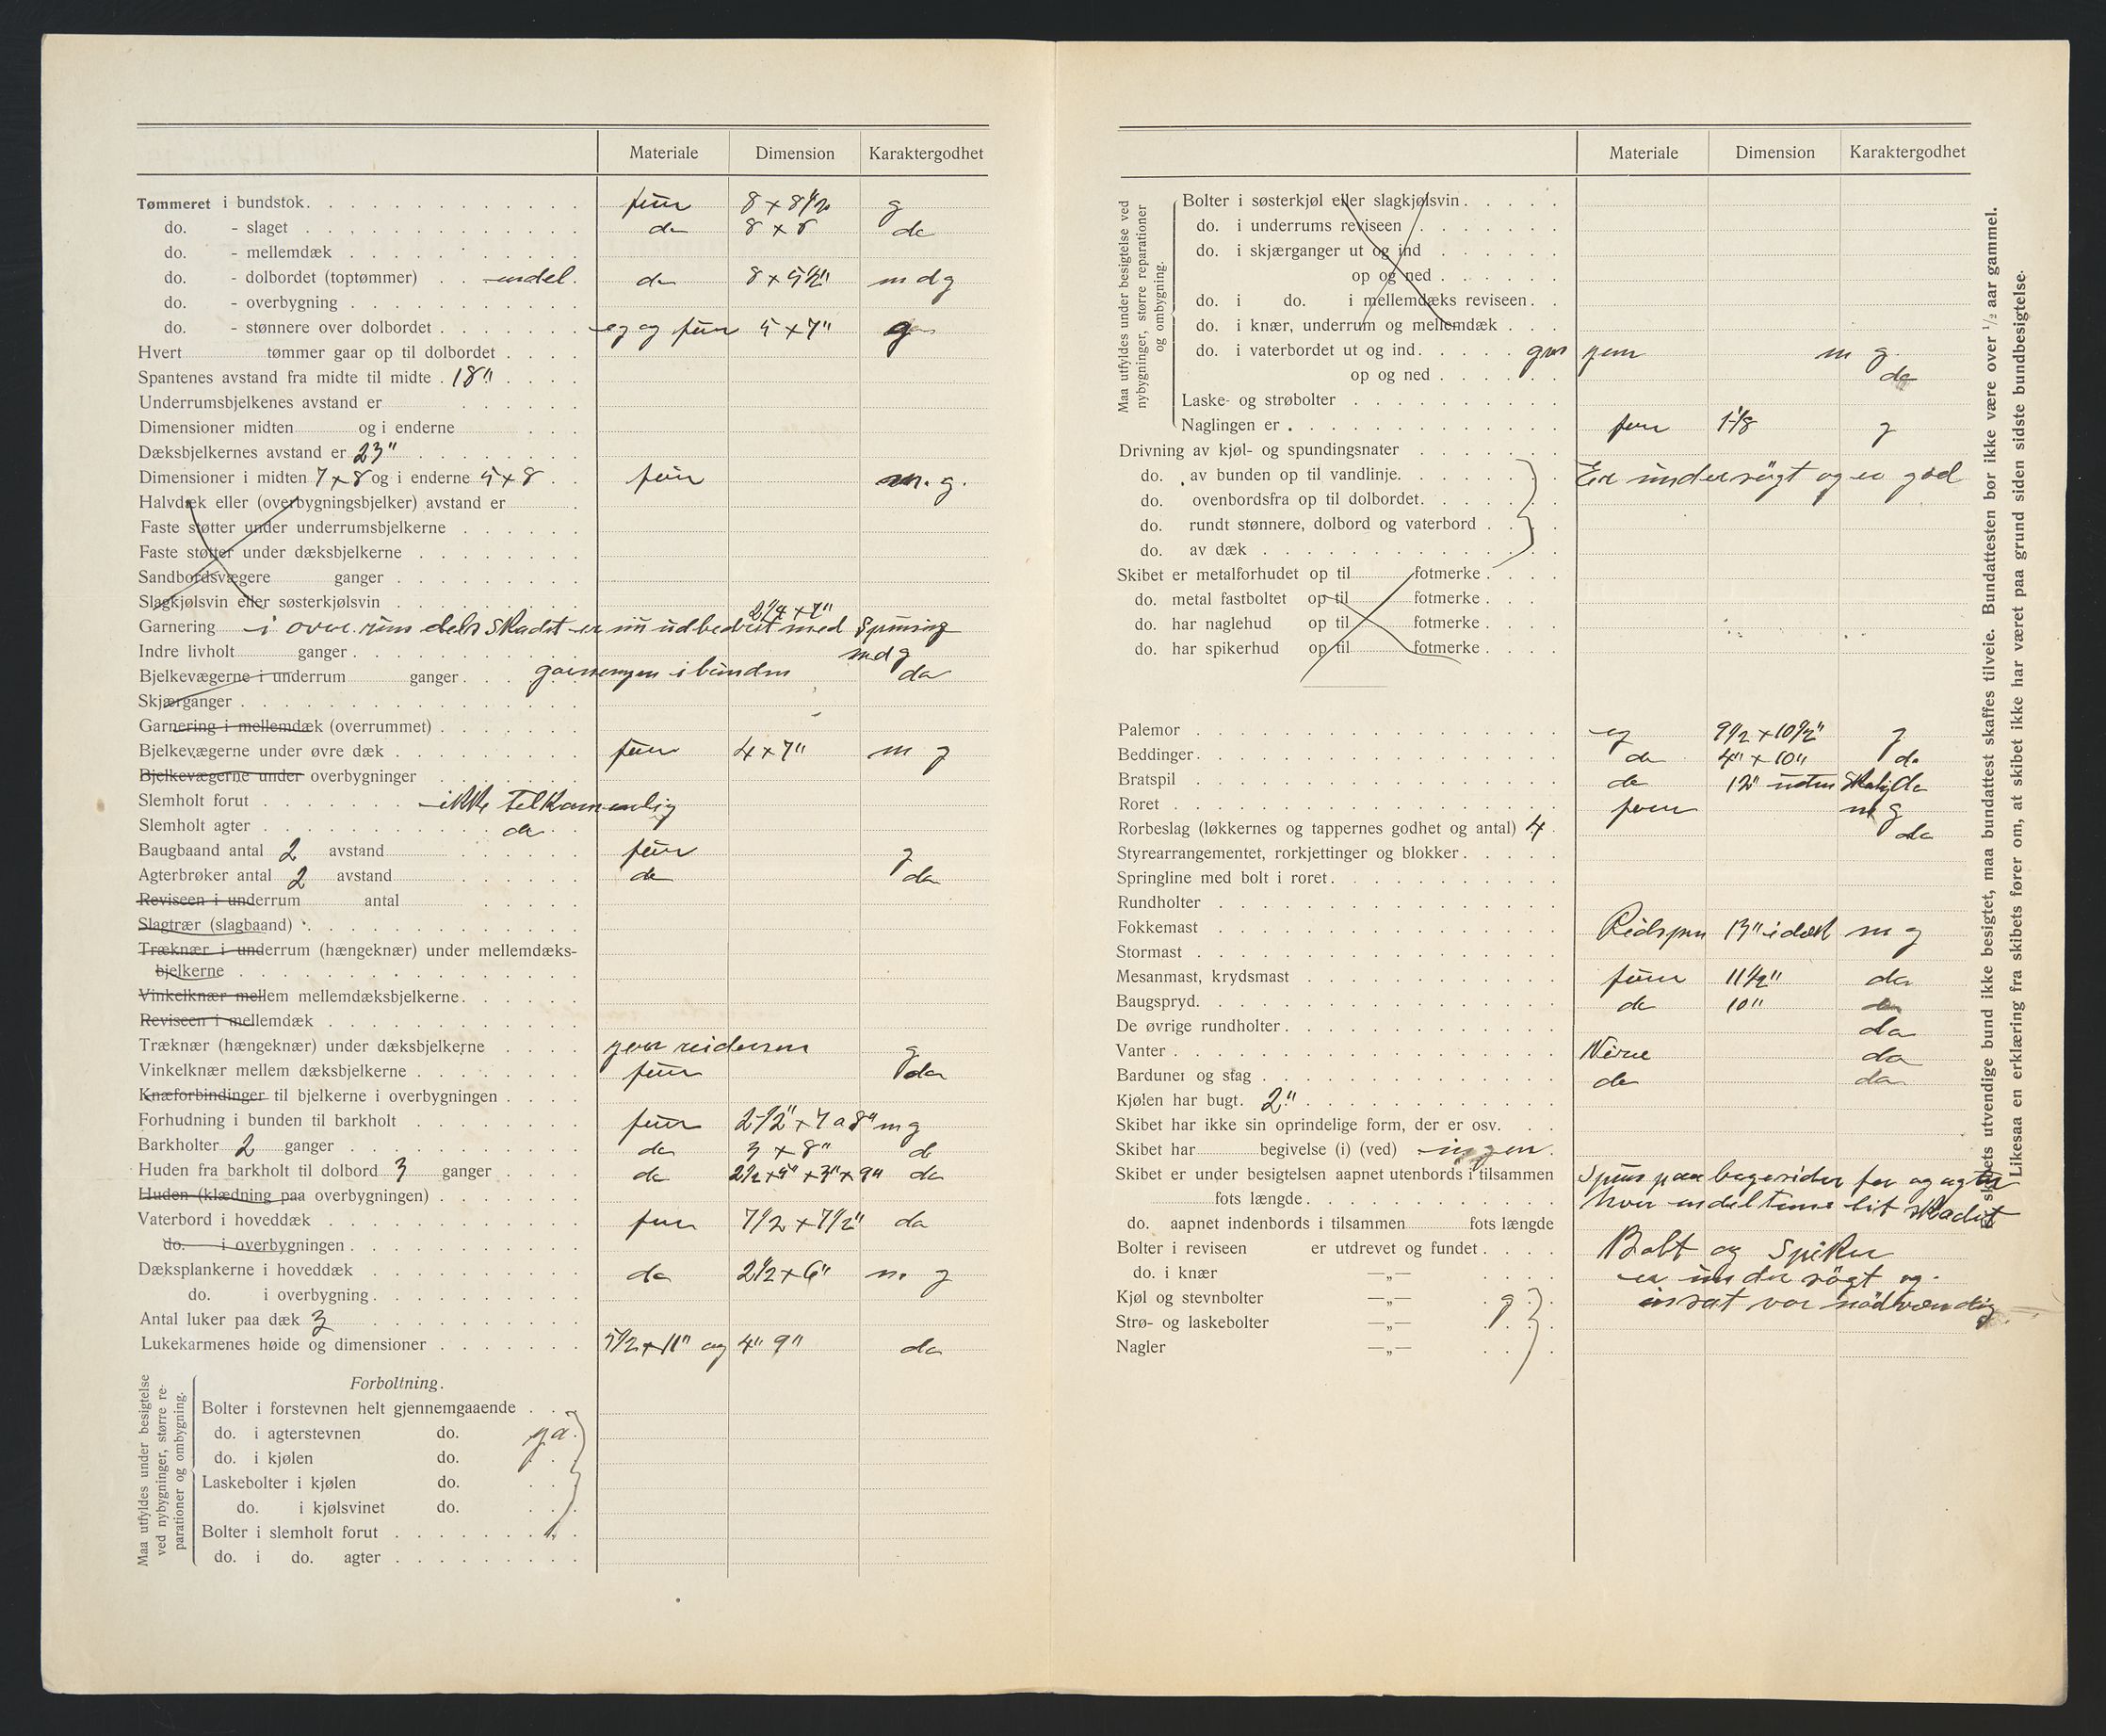 Materiale Dimension Karaktergodhet
Tømmeret i bundstok furu 8 x 8 1/2 g
do. - slaget do 8 x 8 do
do. - mellemdæk
do. - dolbordet (toptømmer) endel do 8 x 5 1/2" m d g
do. - overbygning
do. - stønnere over dolbordet eg og furu 5 x 7" g
Hvert tømmer gaar op til dolbordet
Spantenes avstand fra midte til midte 18"
Underrumsbjelkenes avstand er
Dimensioner midten og i enderne
Dæksbjelkernes avstand er 23"
Dimensioner i midten 7 x 8 og i enderne 5 x 8 furu m. g.
Halvdæk eller (overbygningsbjelker) avstand er
Faste støtter under underrumsbjelkerne
Faste støtter under dæksbjelkerne
Sandbordsvægere ganger
Slagkjølsvin eller søsterkjølsvin
2 1/4 x 7"
Garnering i over rum dels skadet er nu udbedret med
Indre livholt ganger m d g
Bjelkevægerne i underrum ganger i bunden da
Skjærganger
Garnering i mellemdæk (overrummet)
Bjelkevægerne under øvre dæk furu 4 x 7" m g
Bjelkevægerne under overbygninger
Slemholt forut ikke
Slemholt agter do
Baugbaand antal 2 avstand furu g
Agterbrøker antal 2 avstand do do
Reviseen i underrum antal
Slagtrær (slagbaand)
Træknær i underrum (hængeknær) under mellemdæks-
bjelkerne
Vinkelknær mellem mellemdæksbjelkerne
Reviseen i mellemdæk
Træknær (hængeknær) under dæksbjelkerne g
Vinkelknær mellem dæksbjelkerne furu do
Knæforbindinger til bjelkerne i overbygningen
Forhudning i bunden til barkholt furu 2 1/2" x 7 a 8" m g
Barkholter 2 ganger do 3 x 8" do
Huden fra barkholt til dolbord 3 ganger do 2 1/2 x 5" x 3" x 9" do
Huden (klædning paa overbygningen)
Vaterbord i hoveddæk furu 7 1/2 x 7 1/2" do
do. i overbygningen
Dæksplankerne i hoveddæk do 2 1/2 x 6" m. g
do. i overbygning
Antal luker paa dæk 3
Lukekarmenes høide og dimensioner 5 1/2 x 11" og 4" 9" do
Maa utfyldes under besigtelse
ved nybygninger, større re-
parationer og ombygning.
Forboltning.
Bolter i forstevnen helt gjennemgaaende
do. i agterstevnen do. ja
do. i kjølen do.
Laskebolter i kjølen do.
do. i kjølsvinet do.
Bolter i slemholt forut
do. i do. agter
Materiale Dimension Karaktergodhet
Maa utfyldes under besigtelse ved
nybygninger, større reparationer
og ombygning.
Bolter i søsterkjøl eller slagkjølsvin
do. i underrums reviseen
do. i skjærganger ut og ind
op og ned
do. i do. i mellemdæks reviseen
do. i knær, underrum og mellemdæk
do. i vaterbordet ut og ind m g
op og ned do
Laske- og strøbolter
Naglingen er furu 1 1/8 g
Drivning av kjøl- og spundingsnater
do. av bunden op til vandlinje Er undersøgt og er god
do. ovenbordsfra op til dolbordet
do. rundt stønnere, dolbord og vaterbord
do. av dæk
Skibet er metalforhudet op til fotmerke
do. metal fastboltet op til fotmerke
do. har naglehud op til fotmerke
do. har spikerhud op til fotmerke
Palemor eg 9 1/2 x 10 1/2" g
Beddinger do 4" x 10" do
Bratspil do 12" uden do
Roret furu m g
Rorbeslag (løkkernes og tappernes godhet og antal) 4 do
Styrearrangementet, rorkjettinger og blokker
Springline med bolt i roret
Rundholter
Fokkemast 13" i dæk m g
Stormast
Mesanmast, krydsmast furu 11 1/2" do
Baugspryd do 10" do
De øvrige rundholter do
Vanter Wire do
Barduner og stag do do
Kjølen har bugt. 2"
Skibet har ikke sin oprindelige form, der er osv.
Skibet har begivelse (i) (ved) ingen
Skibet er under besigtelsen aapnet utenbords i tilsammen Spuns paa begesider for og agter
fots længde hvor endel lit skadet
do. aapnet indenbords i tilsammen fots længde
Bolter i reviseen er utdrevet og fundet Bolt og Spiker
do. i knær —„— er undersøgt og
Kjøl og stevnbolter —„— g insat var nødvendig
Strø- og laskebolter —„—
Nagler —„—
skibets utvendige bund ikke besigtet, maa bundattest skaffes tilveie. Bundattesten bør ikke være over 1/2 aar gammel.
Likesaa en erklæring fra skibets fører om, at skibet ikke har været paa grund siden sidste bundbesigtelse.